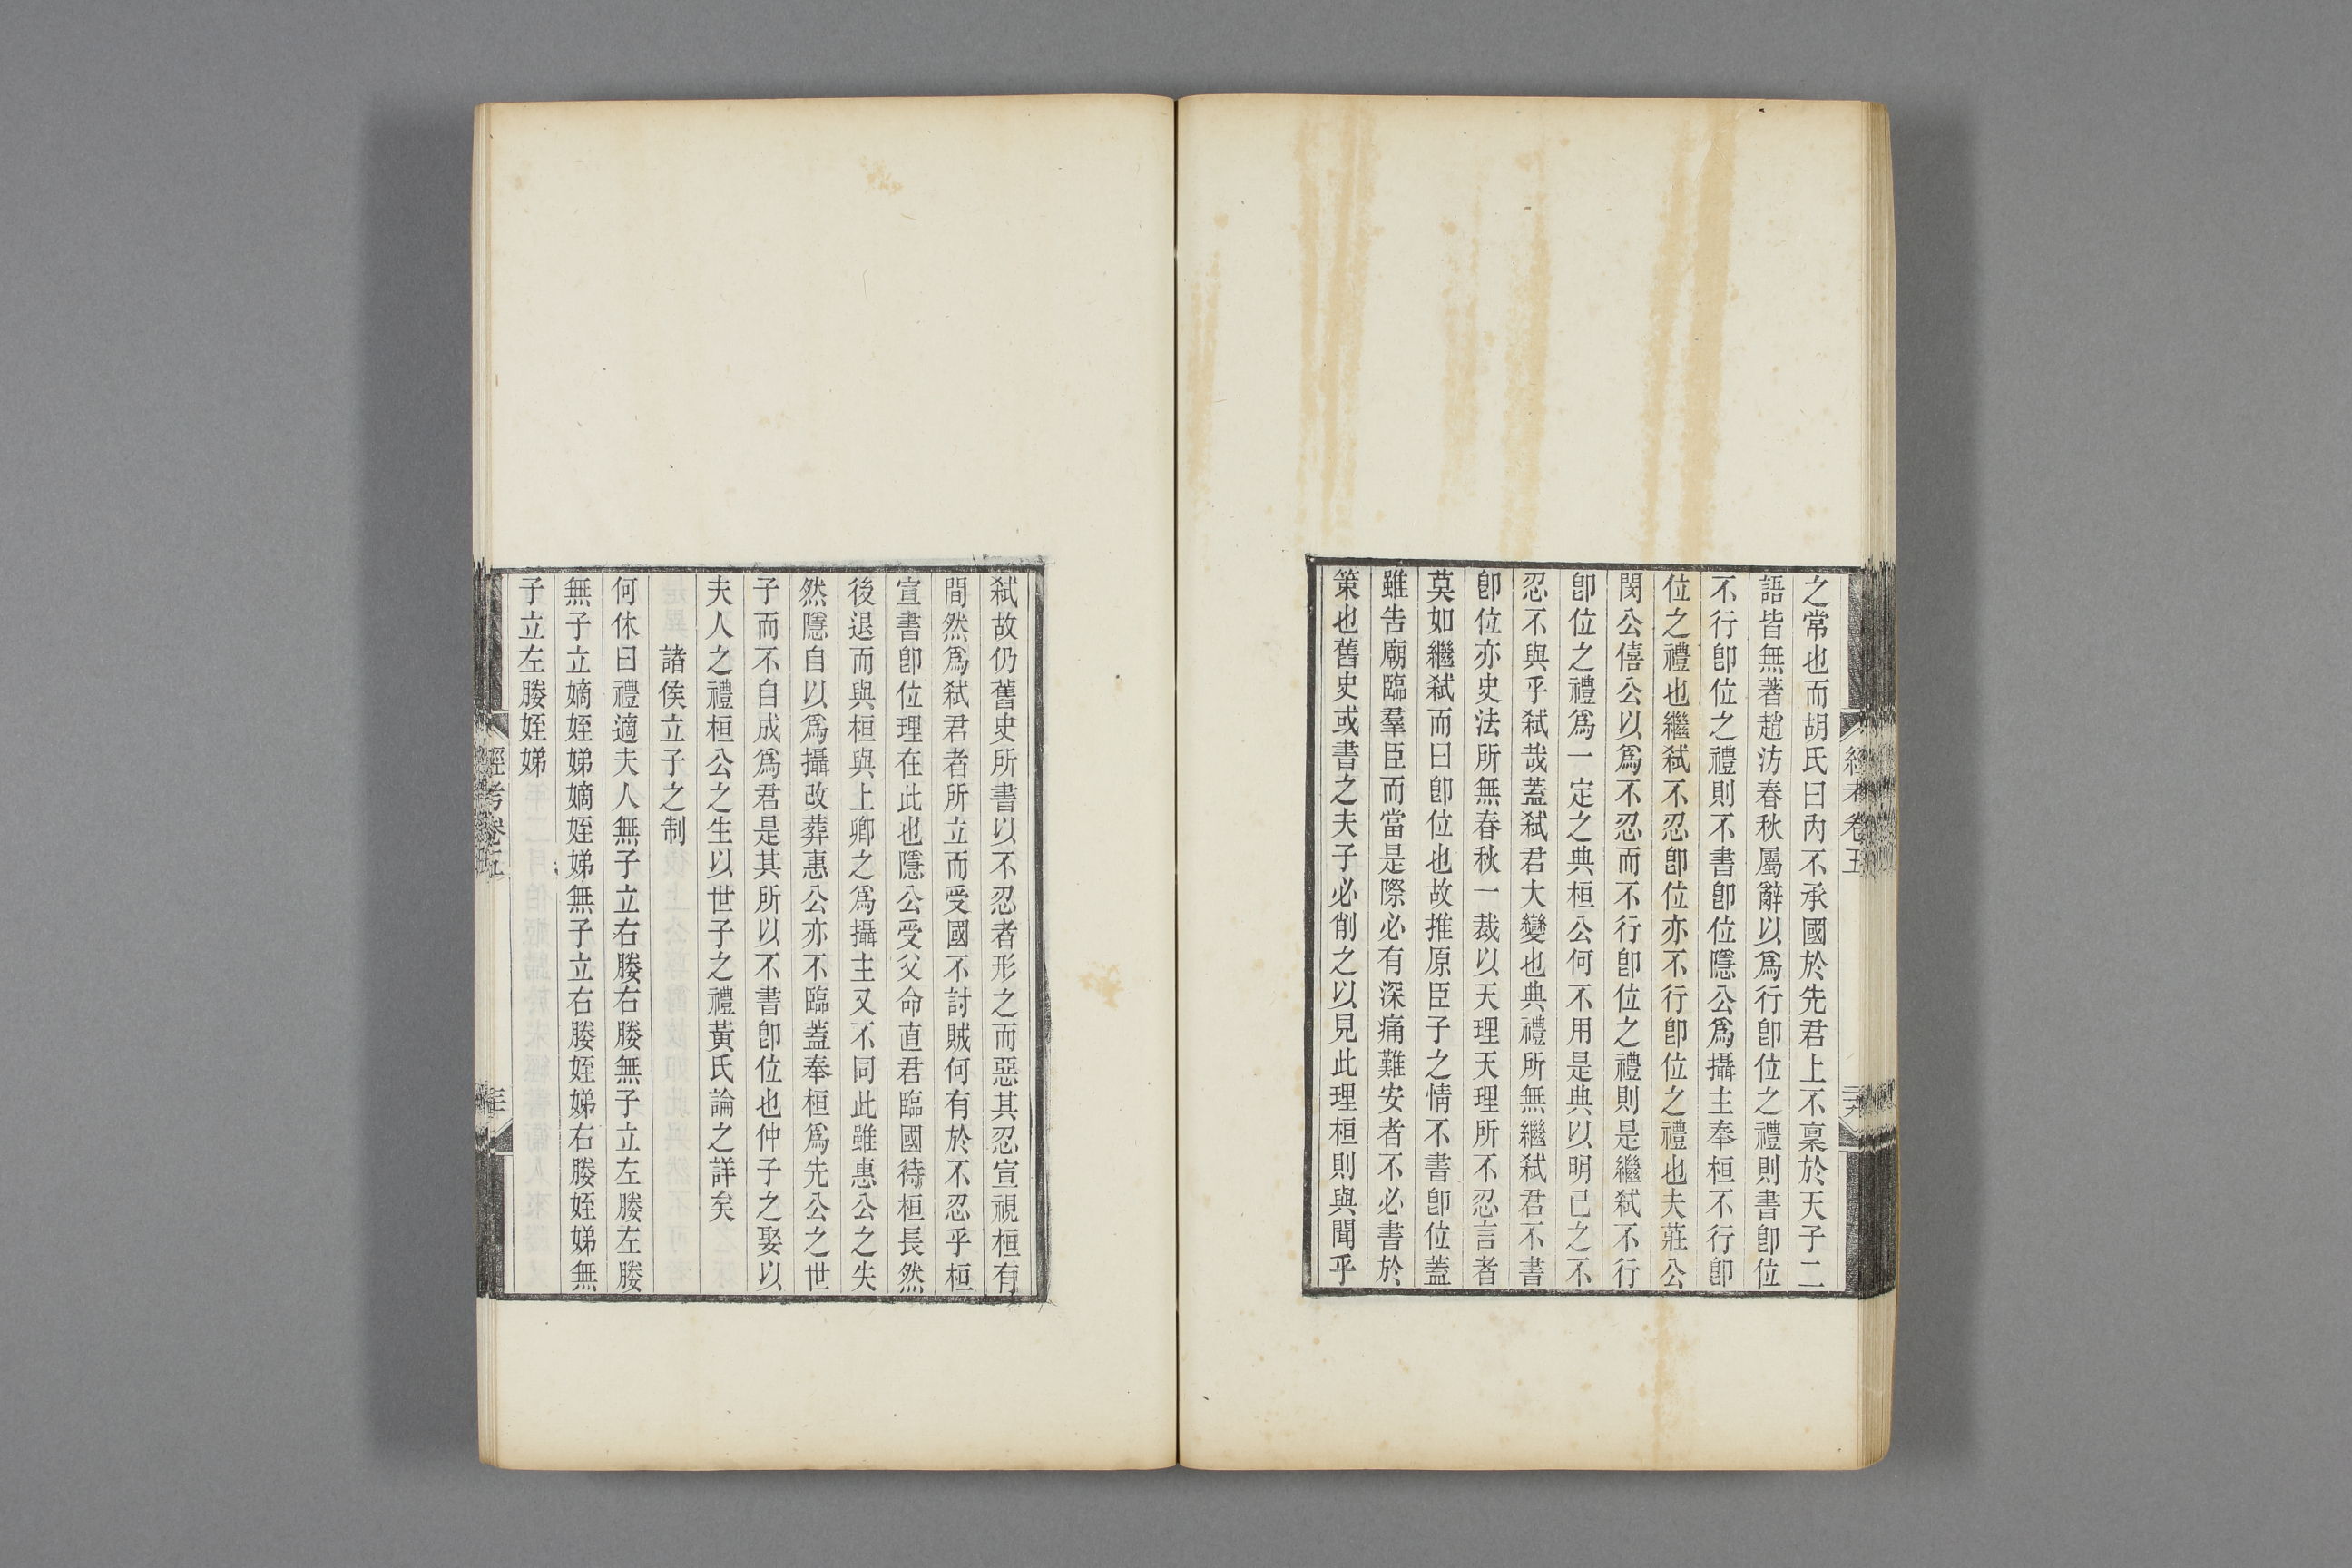 之常也而胡氏曰內不承國於先君上不稟於天子二
語皆無著趙汸春秋屬辭以爲行卽位之禮則書卽位
不行卽位之禮則不書卽位隱公爲攝主奉桓不行卽
位之禮也繼弑不忍卽位亦不行卽位之禮也夫莊公
閔公僖公以爲不忍而不行卽位之禮則是繼弑不行
卽位之禮爲一定之典桓公何不用是典以明己之不
忍不與乎弑哉蓋弑君大變也典禮所無繼弑君不書
卽位亦史法所無春秋一裁以天理天理所不忍言者
莫如繼弑而曰卽位也故推原臣子之情不書卽位蓋
雖告廟臨羣臣而當是際必有深痛難安者不必書於
策也舊史或書之夫子必削之以見此理桓則與聞乎
弑故仍舊史所書以不忍者形之而惡其忍宣視桓有
間然爲弑君者所立而受國不討賊何有於不忍乎桓
宣書卽位理在此也隱公受父命直君臨國待桓長然
後退而與桓與上卿之爲攝主又不同此雖惠公之失
然隱自以爲攝改葬惠公亦不臨蓋奉桓爲先公之世
子而不自成爲君是其所以不書卽位也仲子之娶以
夫人之禮桓公之生以世子之禮黃氏論之詳矣
諸侯立子之制
何休曰禮適夫人無子立右媵右媵無子立左媵左媵
無子立嫡姪娣嫡姪娣無子立右媵姪娣右媵姪娣無
子立左媵姪娣
經考卷五